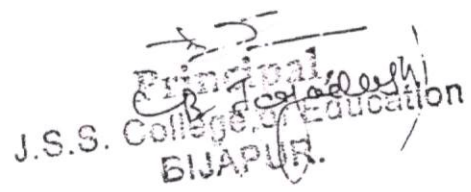 Principal
J.S.S. College of Education
BIJAPUR.